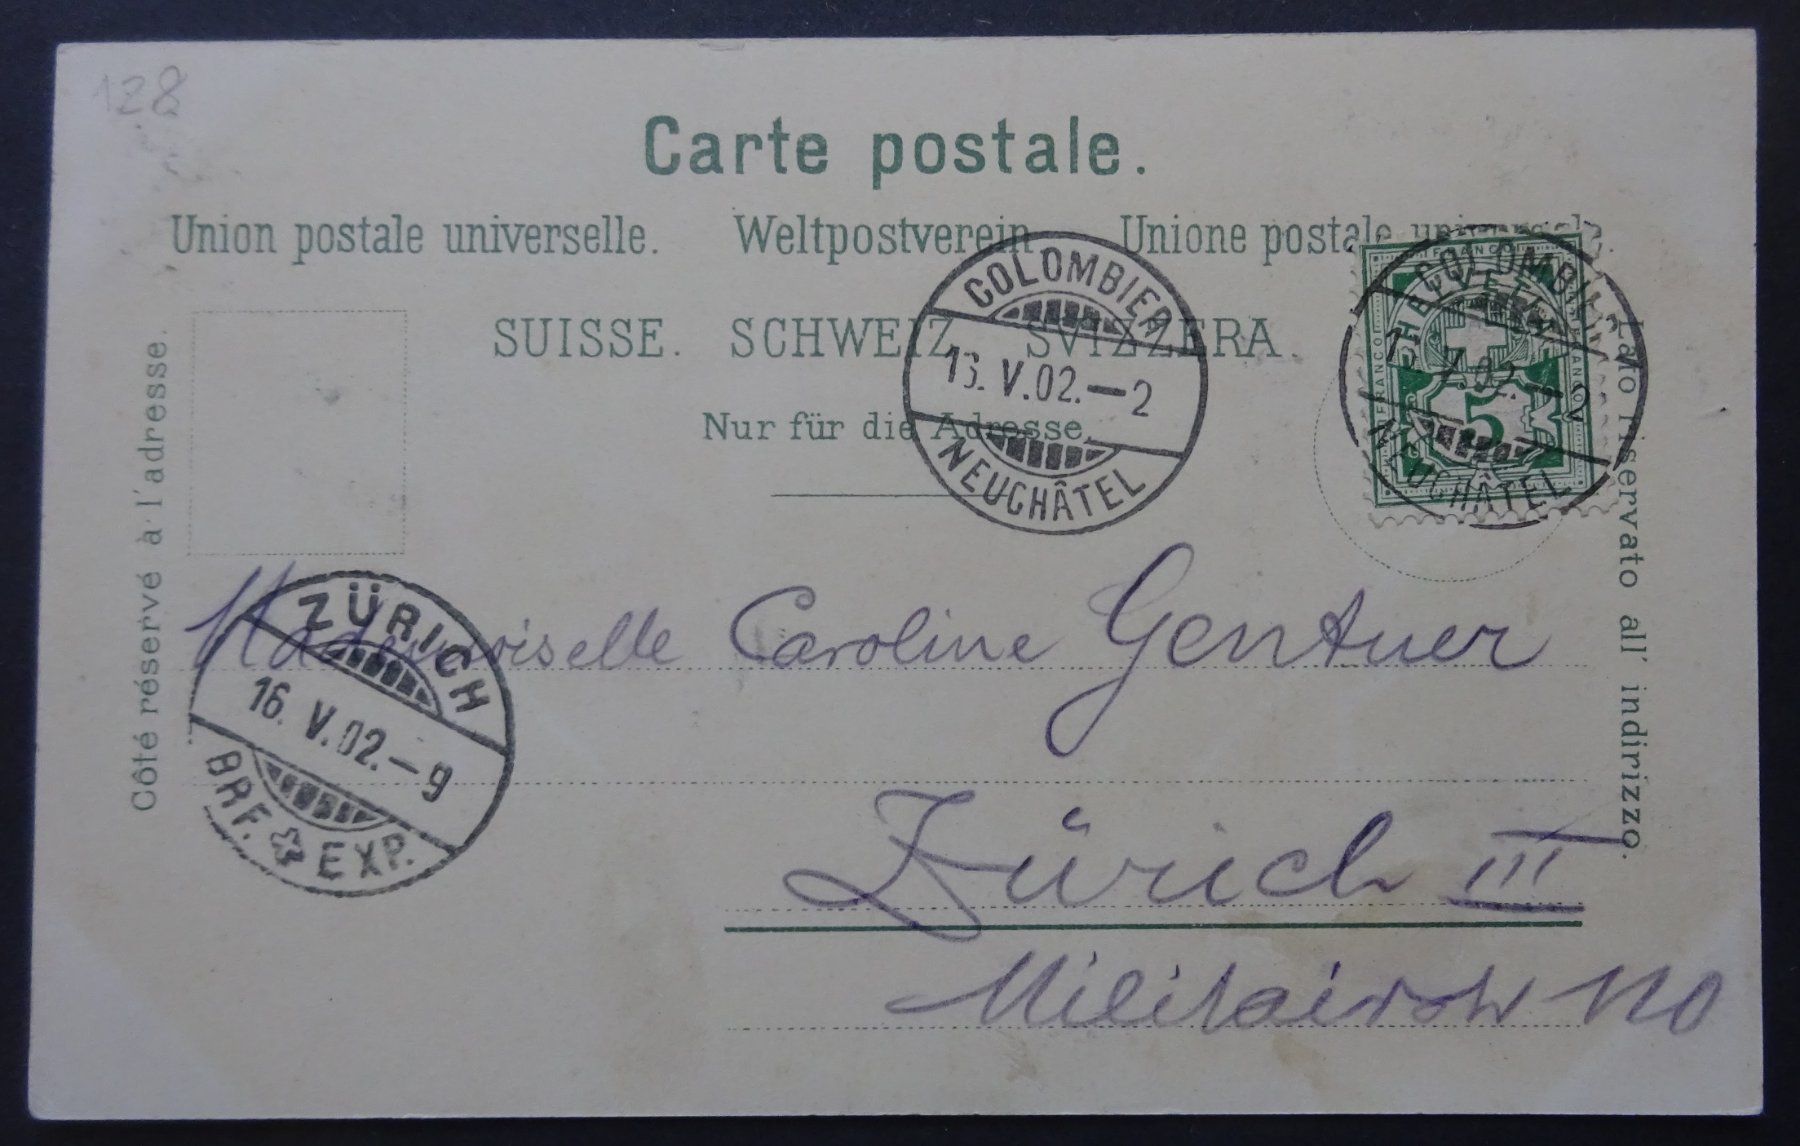 128
Carte postale.
Union postale universelle. Weltpostverein Unione postale universale.
SUISSE. SCHWEIZ SVIZZERA.
Nur für die Adresse.
Côté réservé à l'adresse.
Lato riservato all' indirizzo.
COLOMBIER
16. V.02.—2
NEUCHÂTEL
FRANCO
HELVETIA
FRANCO
FRANCO
5
COLOMBIER
V.02.—2
NEUCHÂTEL
ZÜRICH
16. V.02.—9
BRF. EXP.
Mademoiselle Caroline Gentner
Zürich III
110